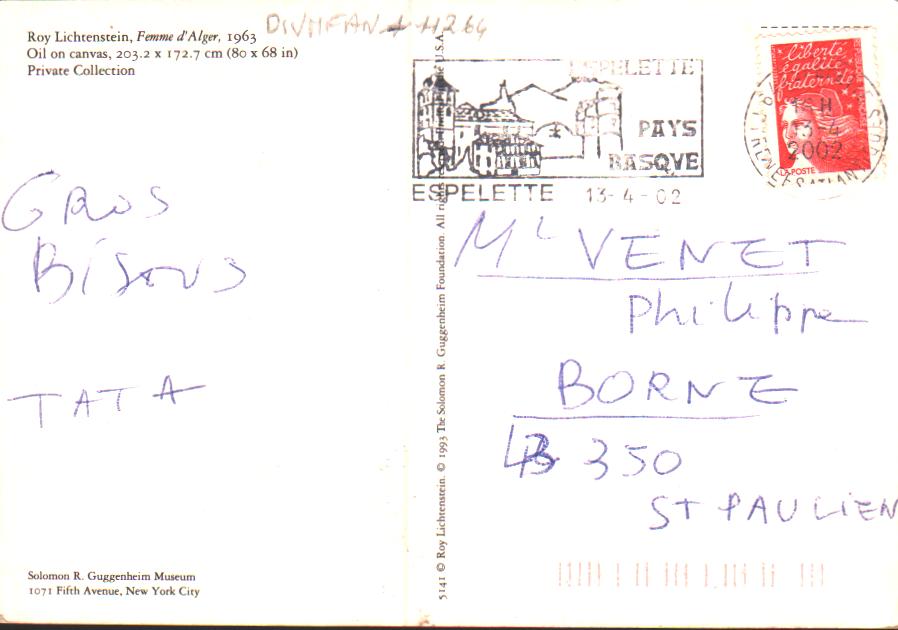 Roy Lichtenstein, Femme d'Alger, 1963
Oil on canvas, 203.2 x 172.7 cm (80 x 68 in)
Private Collection
GROS
BiSOUS
TATA
Solomon R. Guggenheim Museum
1071 Fifth Avenue, New York City
5141 © Roy Lichtenstein. © 1993 The Solomon R. Guggenheim Foundation. All rights
U.S.A.
ESPELETTE
PAYS
BASQVE
ESPELETTE 13-4-02
liberté
égalité
fraternité
13-4
2002
LA POSTE
Mr VENET
Philippe
BORNE
43 350
ST PAULIEN